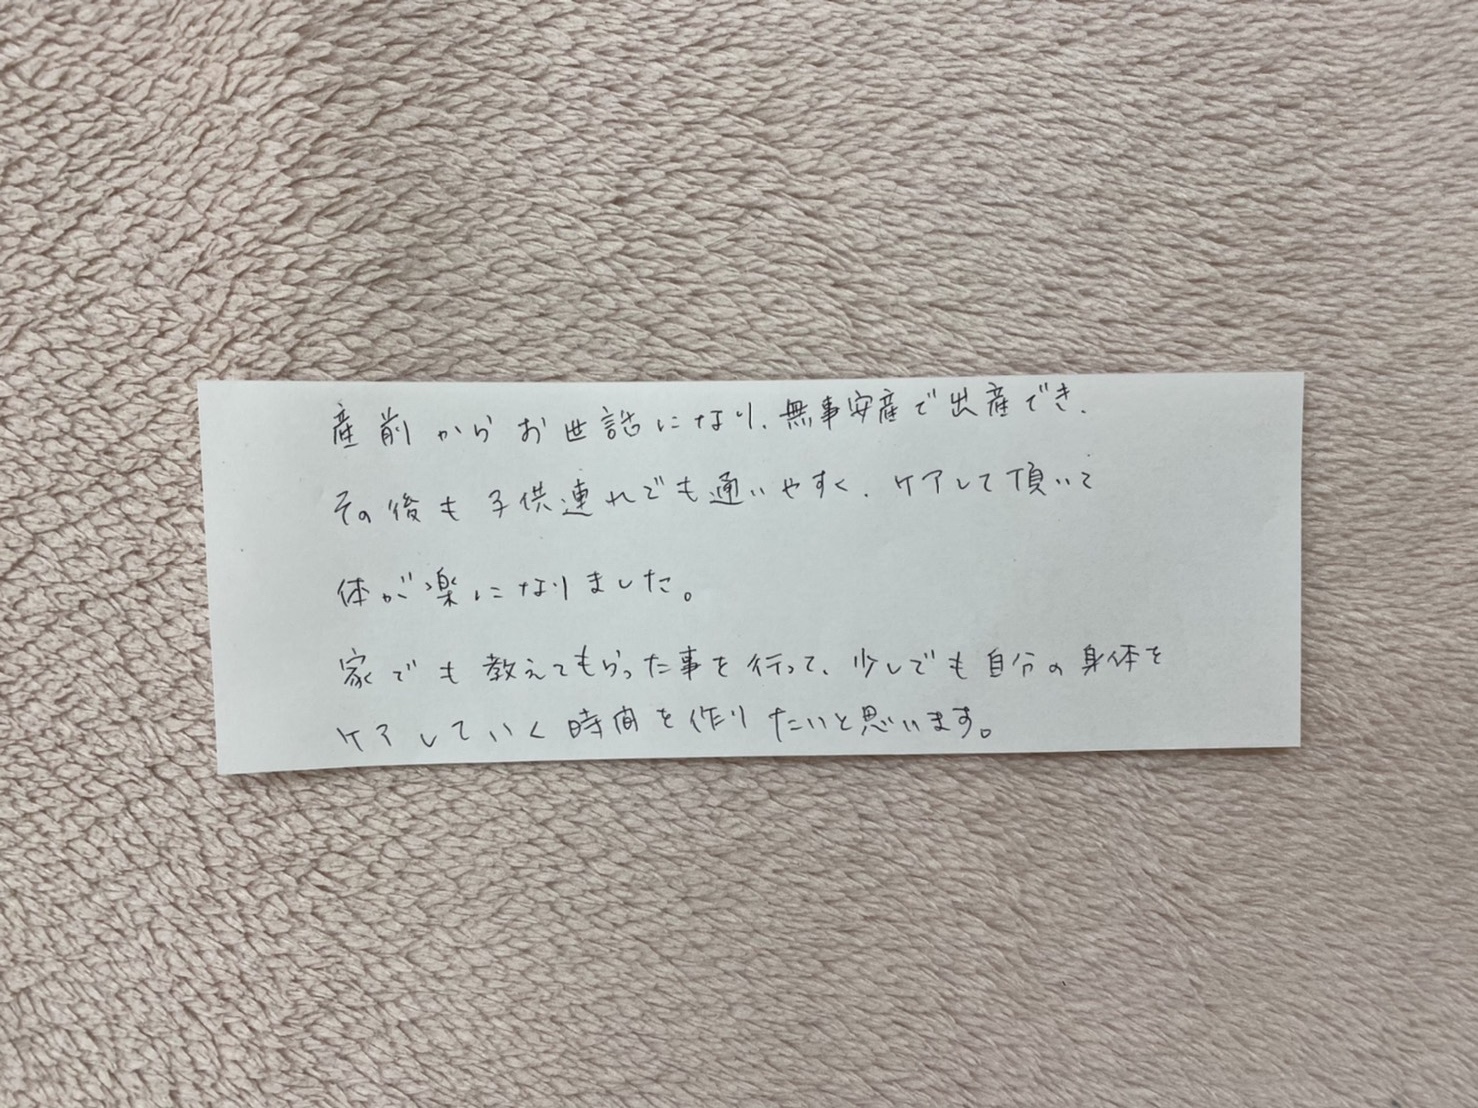 産前からお世話になり、無事安産で出産でき、
その後も子供連れでも通いやすく、ケアして頂いて
体が楽になりました。
家でも教えてもらった事を行って、少しでも自分の身体を
ケアしていく時間を作りたいと思います。